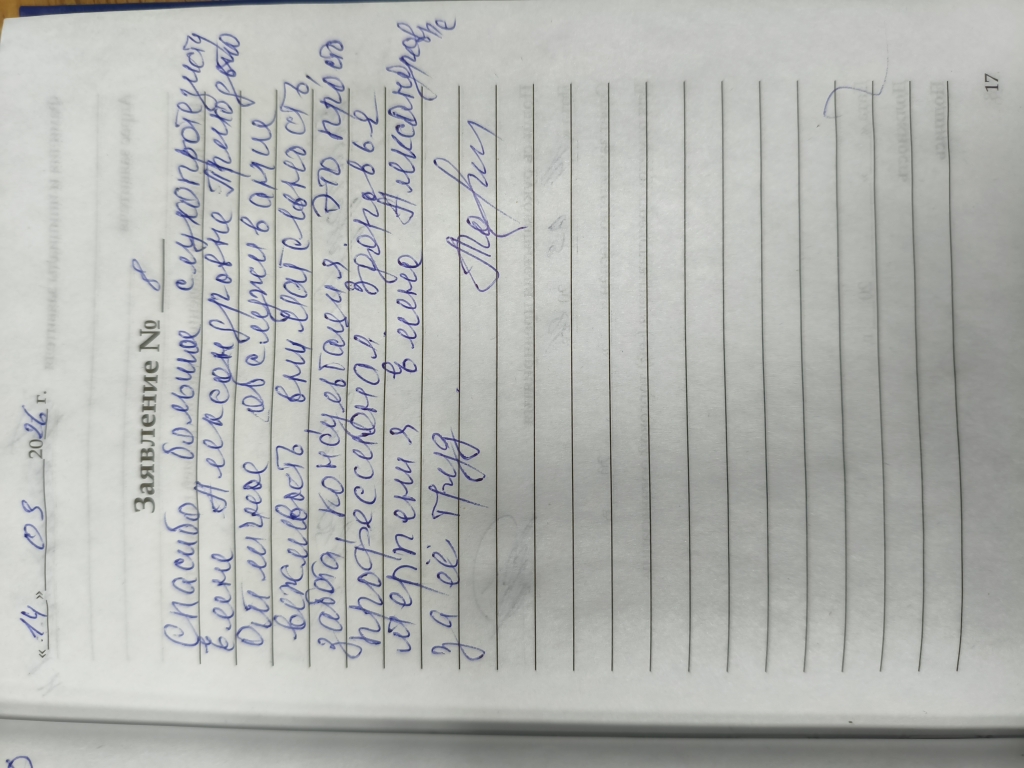 «14» 03 2026 г.
Заявление № 8
Спасибо большое слухопротезисту
Елене Александровне
Отличное обслуживание
вежливость внимательность
забота, консультация Это просто
профессионал Здоровья
терпения Елене Александровне
за её труд
17